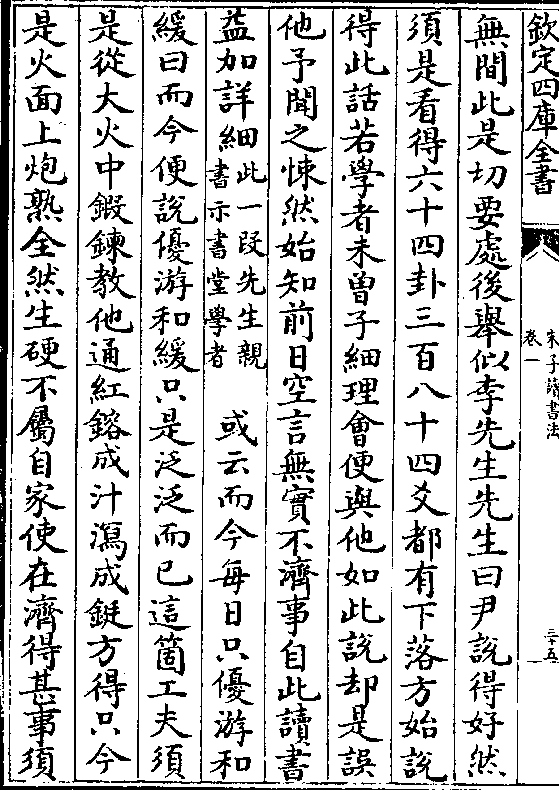 欽定四庫全書
朱子讀書法
卷一
三十五
無間此是切要處後舉似李先生先生曰尹說得好然
須是看得六十四卦三百八十四爻都有下落方始說
得此話若學者未曾子細理會便與他如此說却是誤
他予聞之悚然始知前日空言無實不濟事自此讀書
益加詳細此一段先生親
書示書堂學者
或云而今每日只優游和
緩曰而今便說優游和緩只是泛泛而已這箇工夫須
是從大火中鍜鍊教他通紅鎔成汁瀉成鋌方得只今
是火面上炮熟全然生硬不屬自家使在濟得甚事須